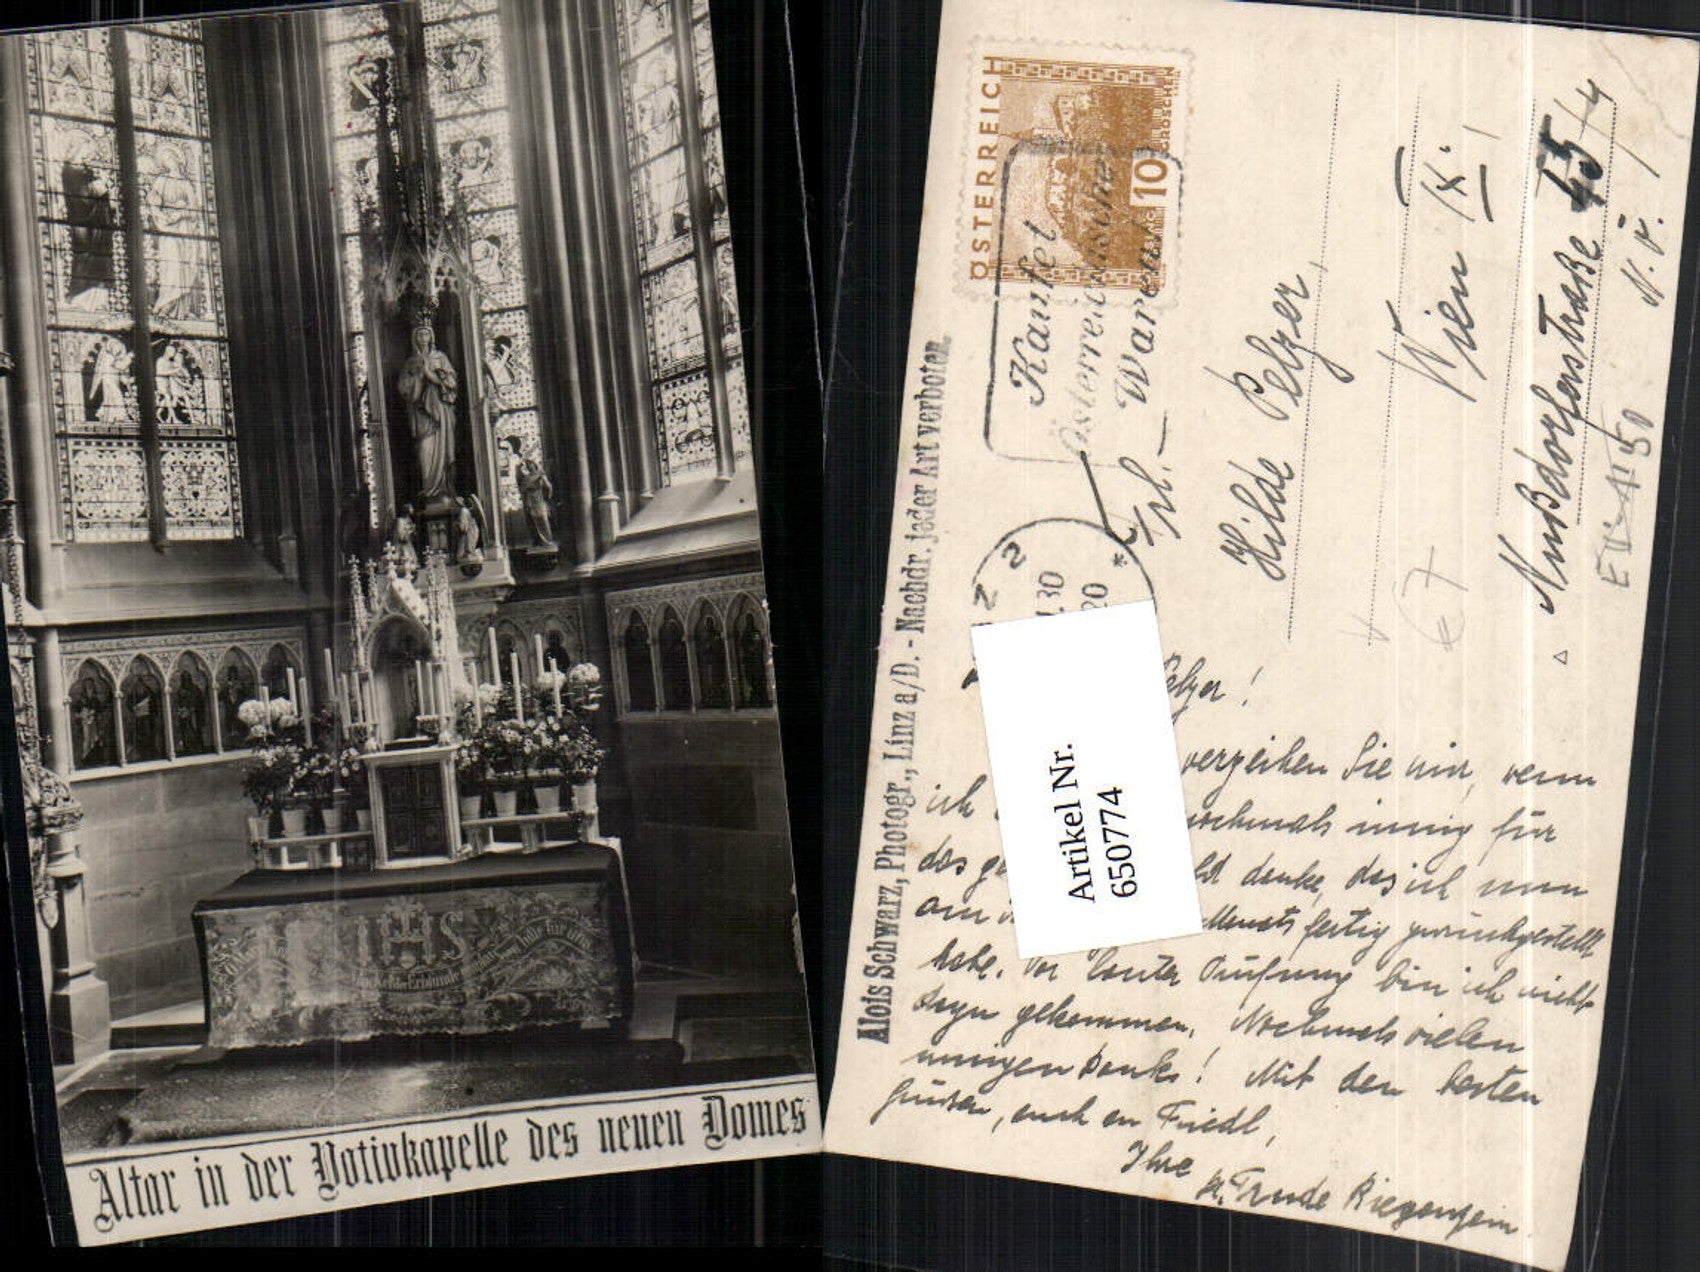 IHS
Altar in der Votivkapelle des neuen Domes
ÖSTERREICH
10
GROSCHEN
Kaufet
österreichische
Waren
Z 2
30
20 *
Alois Schwarz, Photogr., Linz a/D. - Nachdr. jeder Art verboten.
Artikel Nr.
650774
Frl.
Hilde Pelzer,
Wien IX.
Nußdorferstraße 45/4
N.Ö.
elzer!
verzeihen Sie mir, wenn
ich nochmals innig für
das danke, das ich nun
am fertig zurückgestellt
habe. Vor lauter Prüfung bin ich nicht
dazu gekommen. Nochmals vielen
innigen Dank! Mit den besten
Grüßen, auch an Friedl,
Ihre
Trude